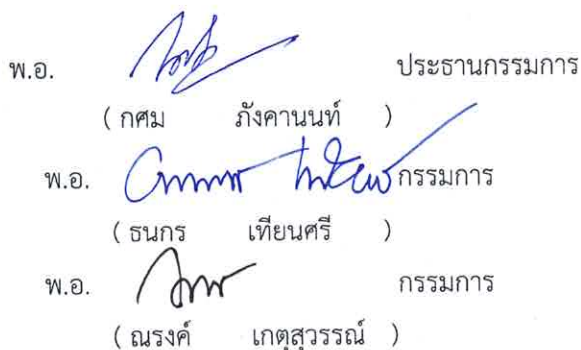 พ.อ. ประธานกรรมการ
( กศม ภังคานนท์ )
พ.อ. กรรมการ
( ธนกร เทียนศรี )
พ.อ. กรรมการ
( ณรงค์ เกตุสุวรรณ์ )